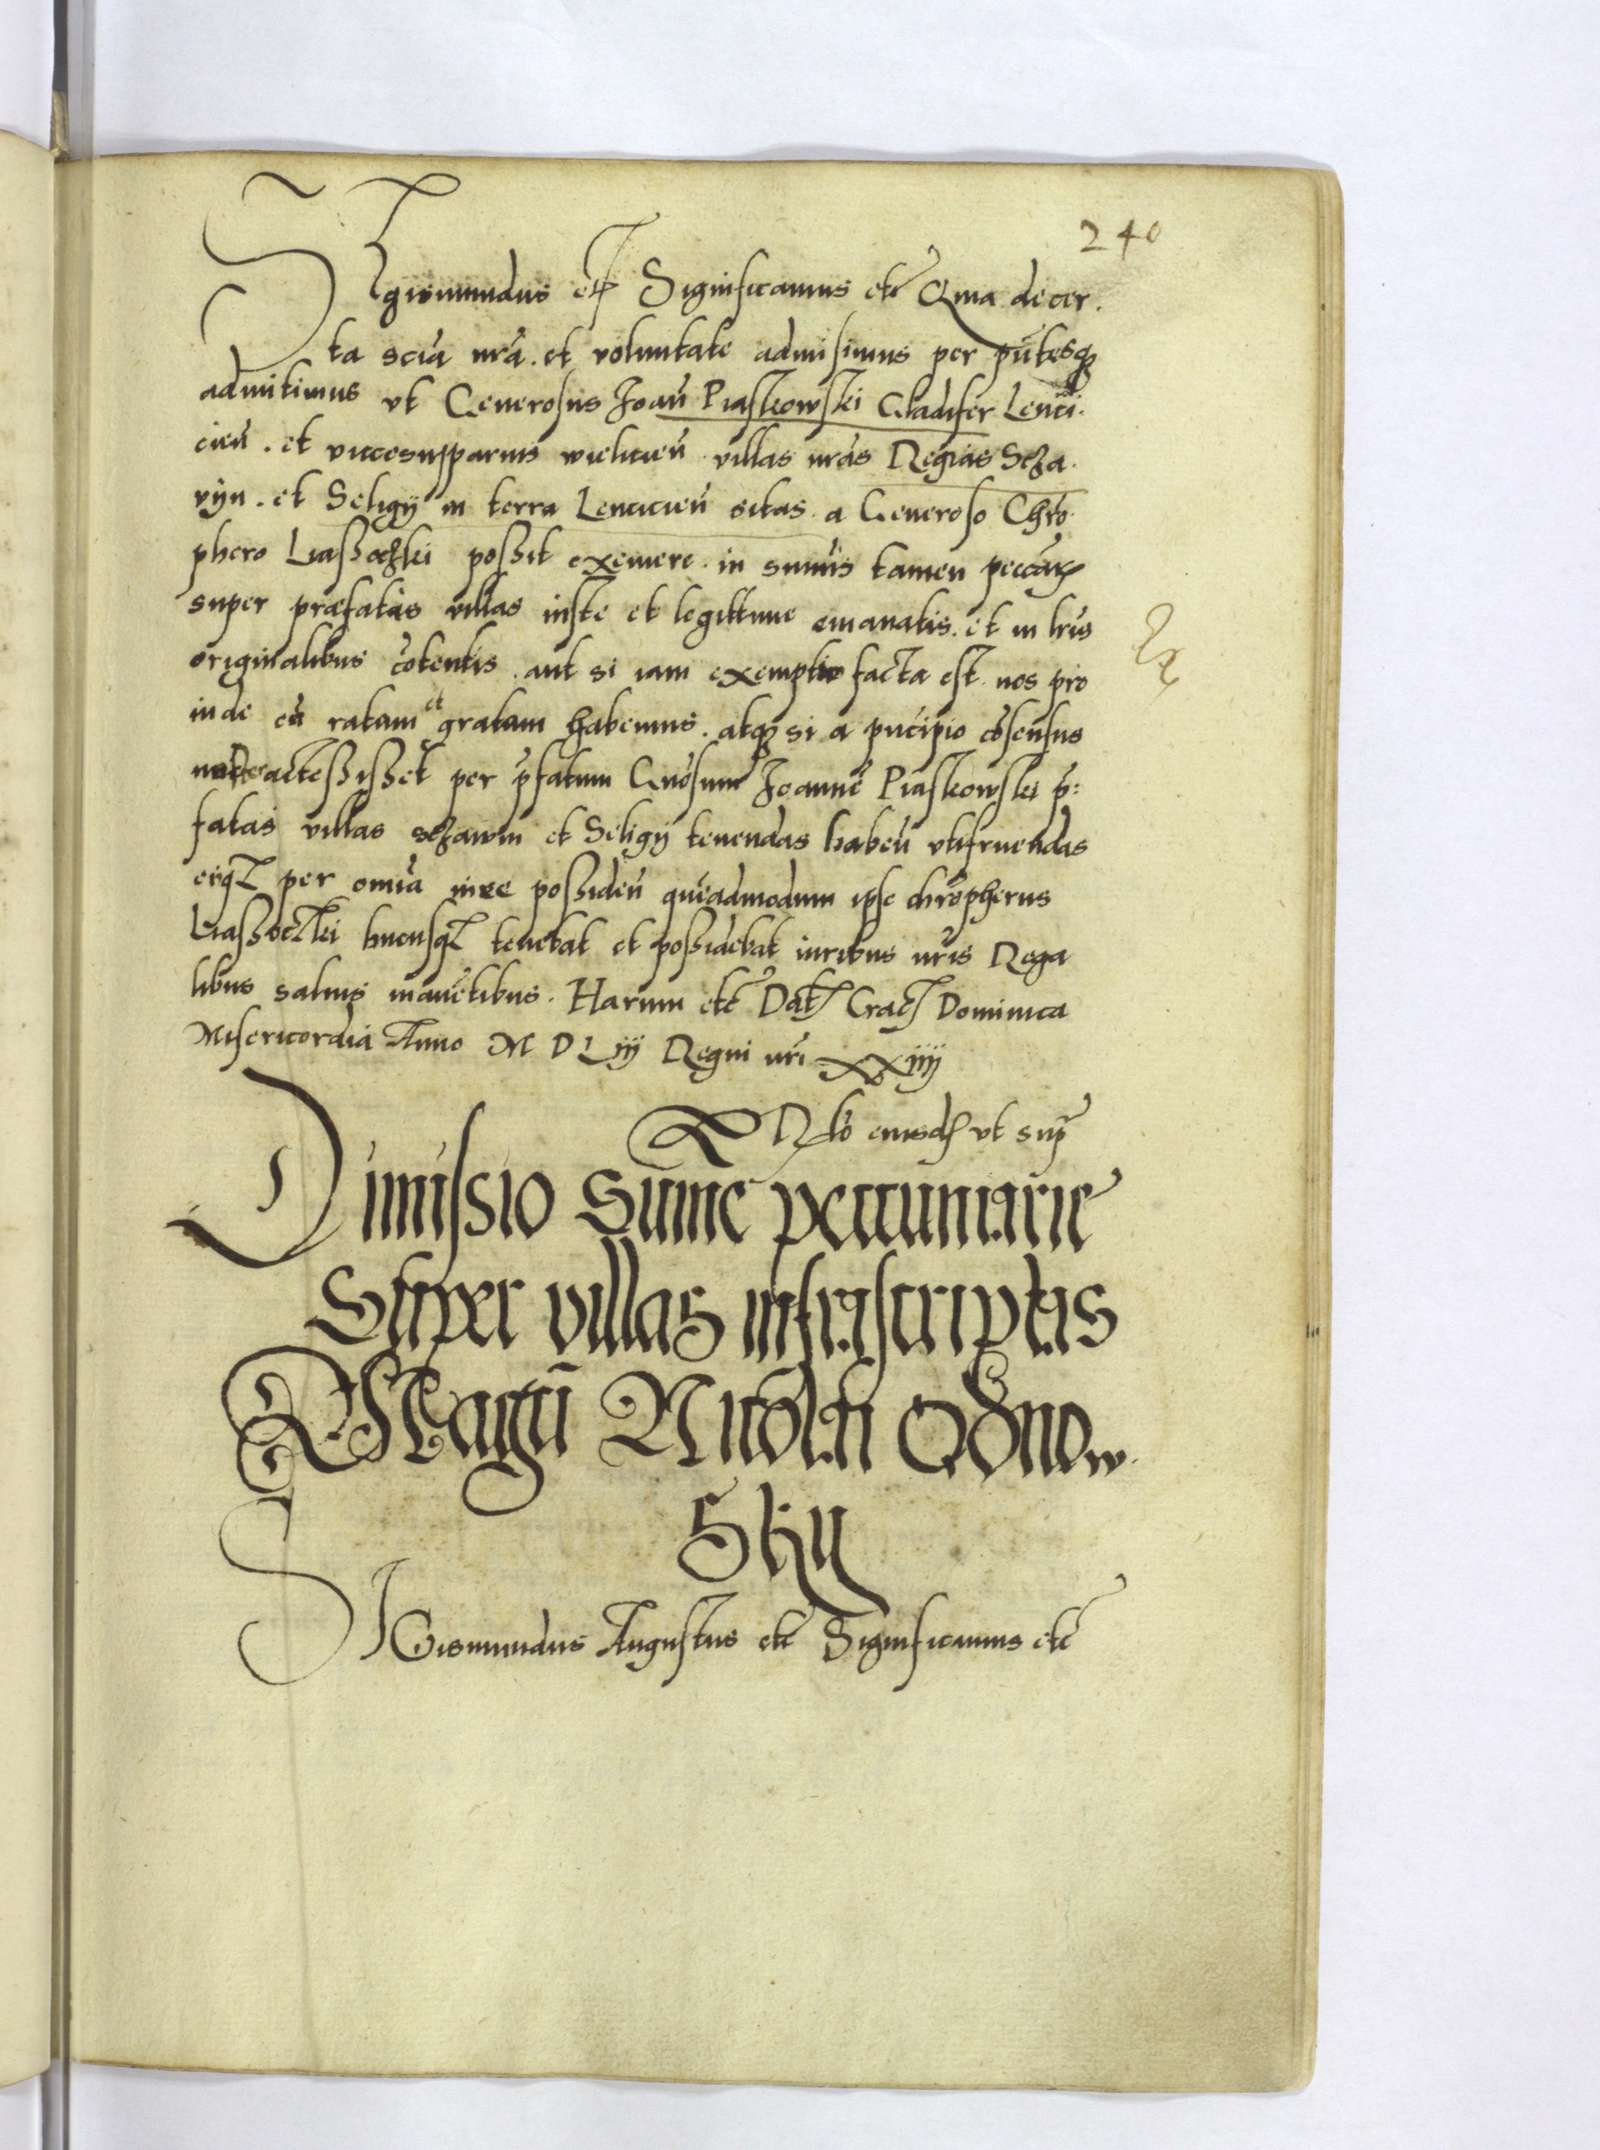 240
Sigismundus etc Significamus etc Quia de cer.
ta sciã nrã. et voluntate admisimus per pñtesq3
admittimus vt Generosus Joañ Piaskowski Gladifer Lenci.
cieñ. et vicesupparius wielicieñ villas nras Regias Scza.
vyn. et Seligÿ in terra Lencicieñ sitas a Generoso Chrõ.
phero Liassoczki possit exemere. in summis tamen peccuñ
super præfatas villas iuste et legittime emanatis. et in lris
originalibus cõtentis. aut si iam exemptio facta est nos pro
inde eã ratam et gratam habemus. atq3 si a pñcipio cõsensus
noster accessisset per pfatum Gnõsum Joannẽ Piaskowski p̃:
fatas villas sczawin et Seligÿ tenendas habeñ vtifruendas
eisq3 per omiã iure possideñ quẽadmodum ipse chrõpherus
Liassoczki hucusq3 tenebat et possidebat iuribus nris Rega
libus saluis manẽtibus. Harum etc Dat Crac Dominica
Misericordiã Anno M D Liij Regni nri xxiiij
Rlõ eiusd vt sup
Dimissio Sum̃e peccuniarie
Super villas infrascriptas
Magci Nicolai Odnow.
Sky
SIGismundus Augustus etc Significamus etc